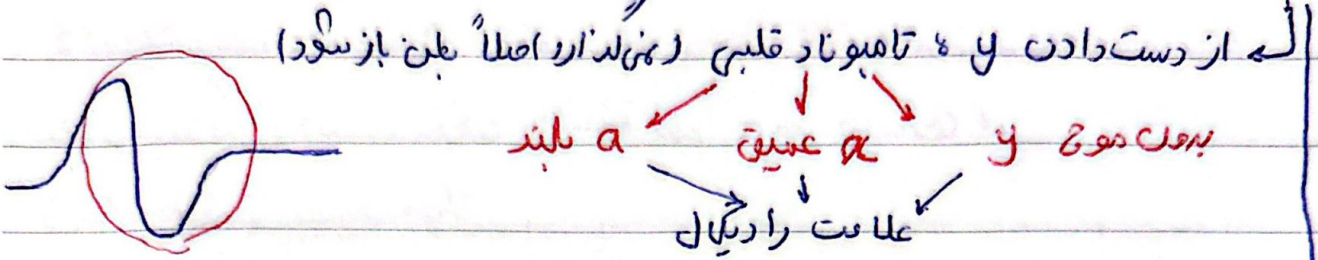 از دست دادن y : تامپوناد قلبی (نمی‌گذارد اصلاً بطن باز شود)
بدون موج y   x عمیق   a بلند
علامت رادیکال